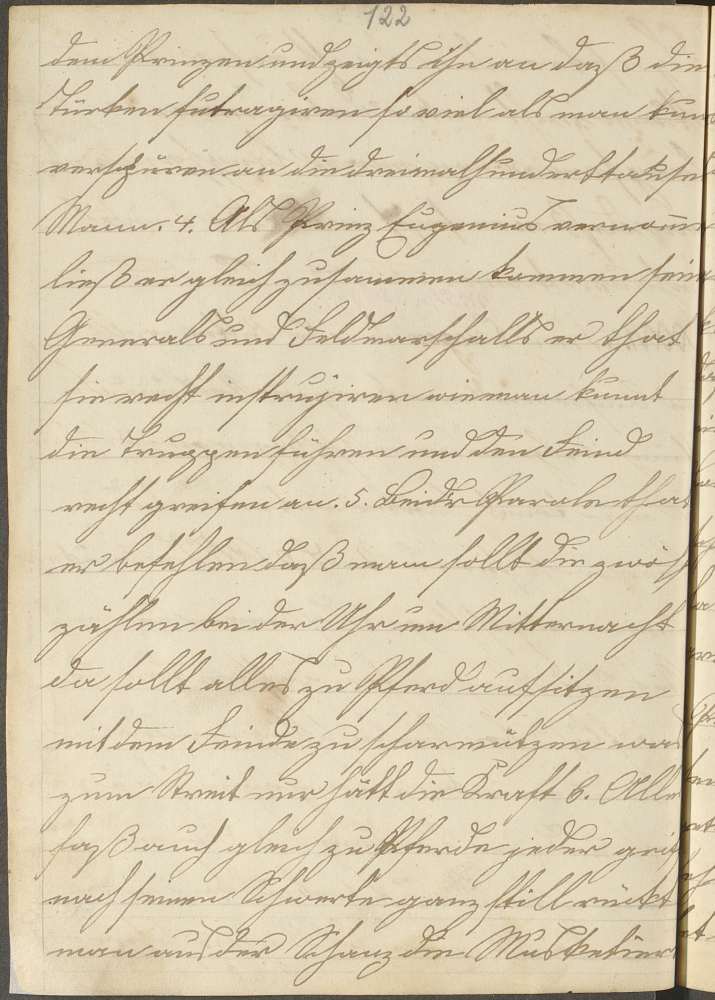 122
dem Prinzen und zeigts ihn an daß die
Türken futragiren so viel als man kun
verspüren an die dreimalhunderttausend
Mann. 4. Als Prinz Eugenius vernomm
ließ er gleich zusammen kommen sein
Generals und Feldmarschalls er that
sie recht instrujiren wie man kunnt
die Truppen führen und den Feind
recht greifen an. 5. Bei der Parole that
er befehlen daß man sollt die zwölf
zählen bei der Uhr um Mitternacht
da sollt alles zu Pferd aufsitzen
mit dem Feinde zu scharmützen was
zum Streit nur hätt die Kraft 6. Alle
saß auch gleich zu Pferde jeder griff
nach seinem Schwerte ganz still rückt
man aus der Schanz die Musketier